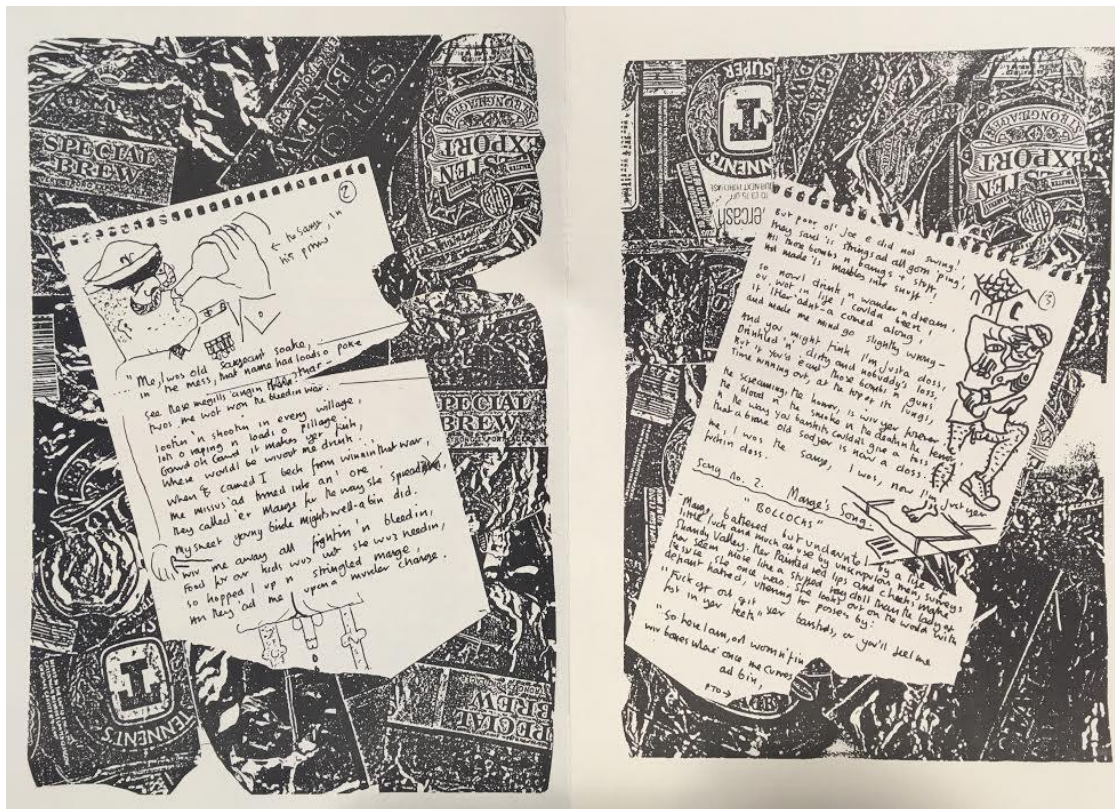 SPECIAL
BREW
EXPORT
SPECIAL
BREW
TENNENTS
SPECIAL
BREW
②
← th Sarge, in
his prime
"Me, I wos old Sargeant Soake,
in the mess, that name had loads o poke
see these megills angin there, thar
twos, me wot won the bleedin war.
lootin 'n shootin in every willage,
lots o raping n loads o pillage,
Gawd oh Gawd it makes yer fink,
Where would be wivout me drink...
When I camed I back from winnin that war,
the missus 'ad turned into an 'ore.
they called 'er Marge for the way she spreaded,
My sweet young bride might as well-a bin did.
wiv me away all fightin' 'n bleedin,
Food for our kids wus wot she wus needin,
so hopped I up n stringled marge,
An they 'ad me upon a murder charge.
SUPER
T
TENNENTS
EXPORT
③
But poor ol' Joe e did not swing!
they said is strings ad all gorn 'ping',
All those bombs n bangs n stuff,
Ad made 'is marbles into snuff
so now I drink n wander n dream,
ov wot in life I coulda been,
if Itler adnt-a comed along,
and made me mind go slightly wrong -
And you might fink I'm justa doss,
Drinkled n dirty and nobuddy's loss,
But if you'd eard those bombs n guns
Time running out, at the top of its lungs,
the screaming, the horror, is wiv yer forever
the blood n the smoke n the death n the terror
n the way you bastids couldn't give a toss
that a brave old sodjer is now a doss.
me, I was the Sarge, I wos, now I'm just yer
fuckin doss.
Song No. 2. Marge's Song.
"BOLLOCKS"
Marge, battered but undaunted by a life of
little luck and much abuse by unscrupulous men, surveys
Shandy Valley. Her painted red lips and cheeks make
her seem more like a stuffed rag doll than the lady of
pleasure she once was. She looks out on the world with
defiant hatred, uttering to passers by:
"Fuck off out of it yer bastids, or you'll feel me
fist in yer teeth"
"So here I am, an
wiv bones where once me curves
ad bin,
PTO →